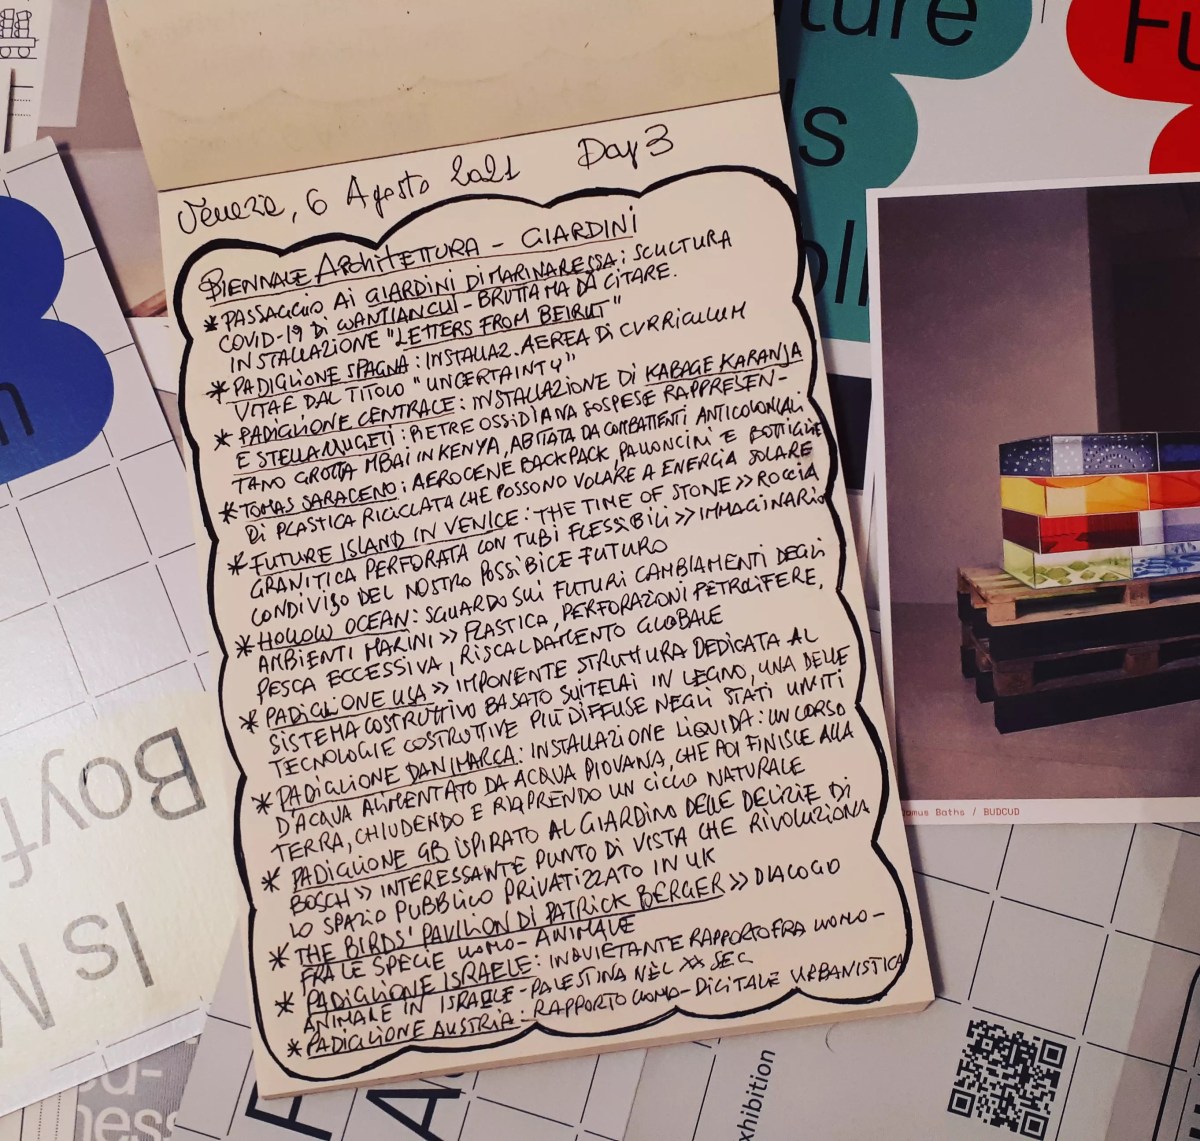 Venezia, 6 Agosto 2021 Day 3
BIENNALE ARCHITETTURA - GIARDINI
* PASSAGGIO AI GIARDINI DI MARINARESSA: SCULTURA
COVID-19 DI WANTIANCUI - BRUTTA MA DA CITARE.
INSTALLAZIONE "LETTERS FROM BEIRUT"
* PADIGLIONE SPAGNA: INSTALLAZ. AEREA DI CURRICULUM
VITAE DAL TITOLO "UNCERTAINTY"
* PADIGLIONE CENTRALE: INSTALLAZIONE DI KABAGE KARANJA
E STELLA MUGETI: PIETRE OSSIDIANA SOSPESE RAPPRESEN-
TANO GROTTA MBAI IN KENYA, ABITATA DA COMBATTENTI ANTICOLONIALI
* TOMAS SARACENO: AEROCENE BACKPACK, PALLONCINI E BOTTIGLIE
DI PLASTICA RICICLATA CHE POSSONO VOLARE A ENERGIA SOLARE
* FUTURE ISLAND IN VENICE: THE TIME OF STONE >> ROCCIA
GRANITICA PERFORATA CON TUBI FLESSIBILI >> IMMAGINARIO
CONDIVISO DEL NOSTRO POSSIBILE FUTURO
* HOLLOW OCEAN: SGUARDO SUI FUTURI CAMBIAMENTI DEGLI
AMBIENTI MARINI >> PLASTICA, PERFORAZIONI PETROLIFERE,
PESCA ECCESSIVA, RISCALDAMENTO GLOBALE
* PADIGLIONE USA >> IMPONENTE STRUTTURA DEDICATA AL
SISTEMA COSTRUTTIVO BASATO SU TELAI IN LEGNO, UNA DELLE
TECNOLOGIE COSTRUTTIVE PIÙ DIFFUSE NEGLI STATI UNITI
* PADIGLIONE DANIMARCA: INSTALLAZIONE LIQUIDA: UN CORSO
D'ACQUA ALIMENTATO DA ACQUA PIOVANA, CHE POI FINISCE ALLA
TERRA, CHIUDENDO E RIAPRENDO UN CICLO NATURALE
* PADIGLIONE GB ISPIRATO AL GIARDINO DELLE DELIZIE DI
BOSCH >> INTERESSANTE PUNTO DI VISTA CHE RIVOLUZIONA
LO SPAZIO PUBBLICO PRIVATIZZATO IN UK
* THE BIRDS' PAVILION DI PATRICK BERGER >> DIALOGO
FRA LE SPECIE UOMO-ANIMALE
* PADIGLIONE ISRAELE: INQUIETANTE RAPPORTO FRA UOMO-
ANIMALE IN ISRAELE-PALESTINA NEL XX SEC
* PADIGLIONE AUSTRIA: RAPPORTO UOMO-DIGITALE URBANISTICA
Boyf
Is M
Baths / BUDCUD